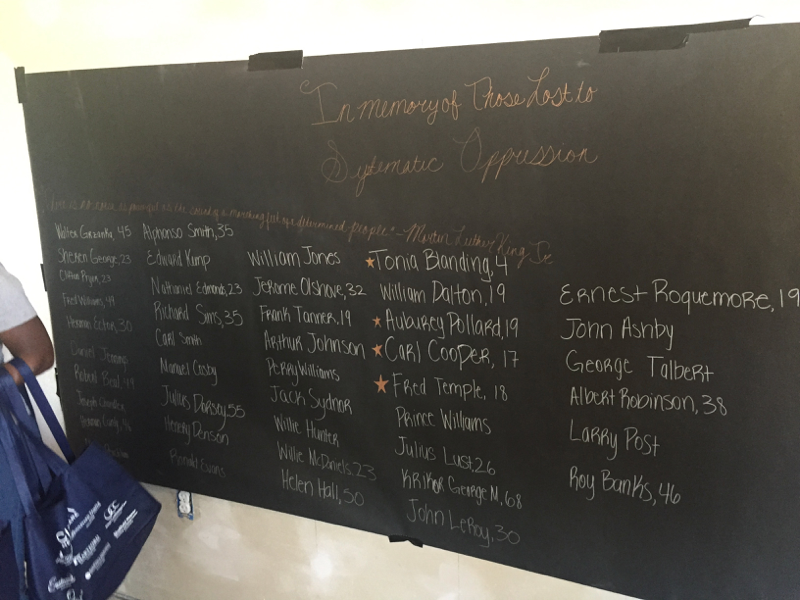 In memory of Those Lost to
Systematic Oppression
"There is no noise as powerful as the sound of a marching feet of a determined people" - Martin Luther King, Jr.
Walter Grzanka, 45
Sheren George, 23
Clifton Pryor, 23
Fred Williams, 49
Herman Ector, 30
Daniel Jennings
Robert Beal, 49
Joseph Chandler
Herman Canty, 46
Alphonso Smith, 35
Edward Kemp
Nathaniel Edmonds, 23
Richard Sims, 35
Carl Smith
Manuel Cosby
Julius Dorsey 55
Henery Denson
Ronald Evans
William Jones
Jerome Olshove, 32
Frank Tanner, 19
Arthur Johnson
Perry Williams
Jack Sydnor
Willie Hunter
Willie McDaniels, 23
Helen Hall, 50
Tonia Blanding, 4
William Dalton, 19
Auburey Pollard, 19
Carl Cooper, 17
Fred Temple, 18
Prince Williams
Julius Lust 26
Krikor George M, 68
John LeRoy, 30
Ernest Roquemore, 19
John Ashby
George Talbert
Albert Robinson, 38
Larry Post
Roy Banks, 46